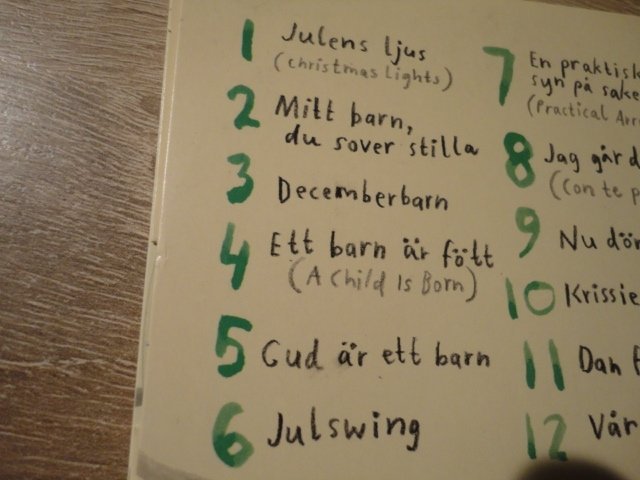 1 Julens ljus
(Christmas Lights)
2 Mitt barn,
du sover stilla
3 Decemberbarn
4 Ett barn är fött
(A Child Is Born)
5 Gud är ett barn
6 Julswing
7 En praktisk
syn på sake
(Practical Arr
8 Jag går d
(Con te p
9 Nu dör
10 Krissie
11 Dan
12 Vår